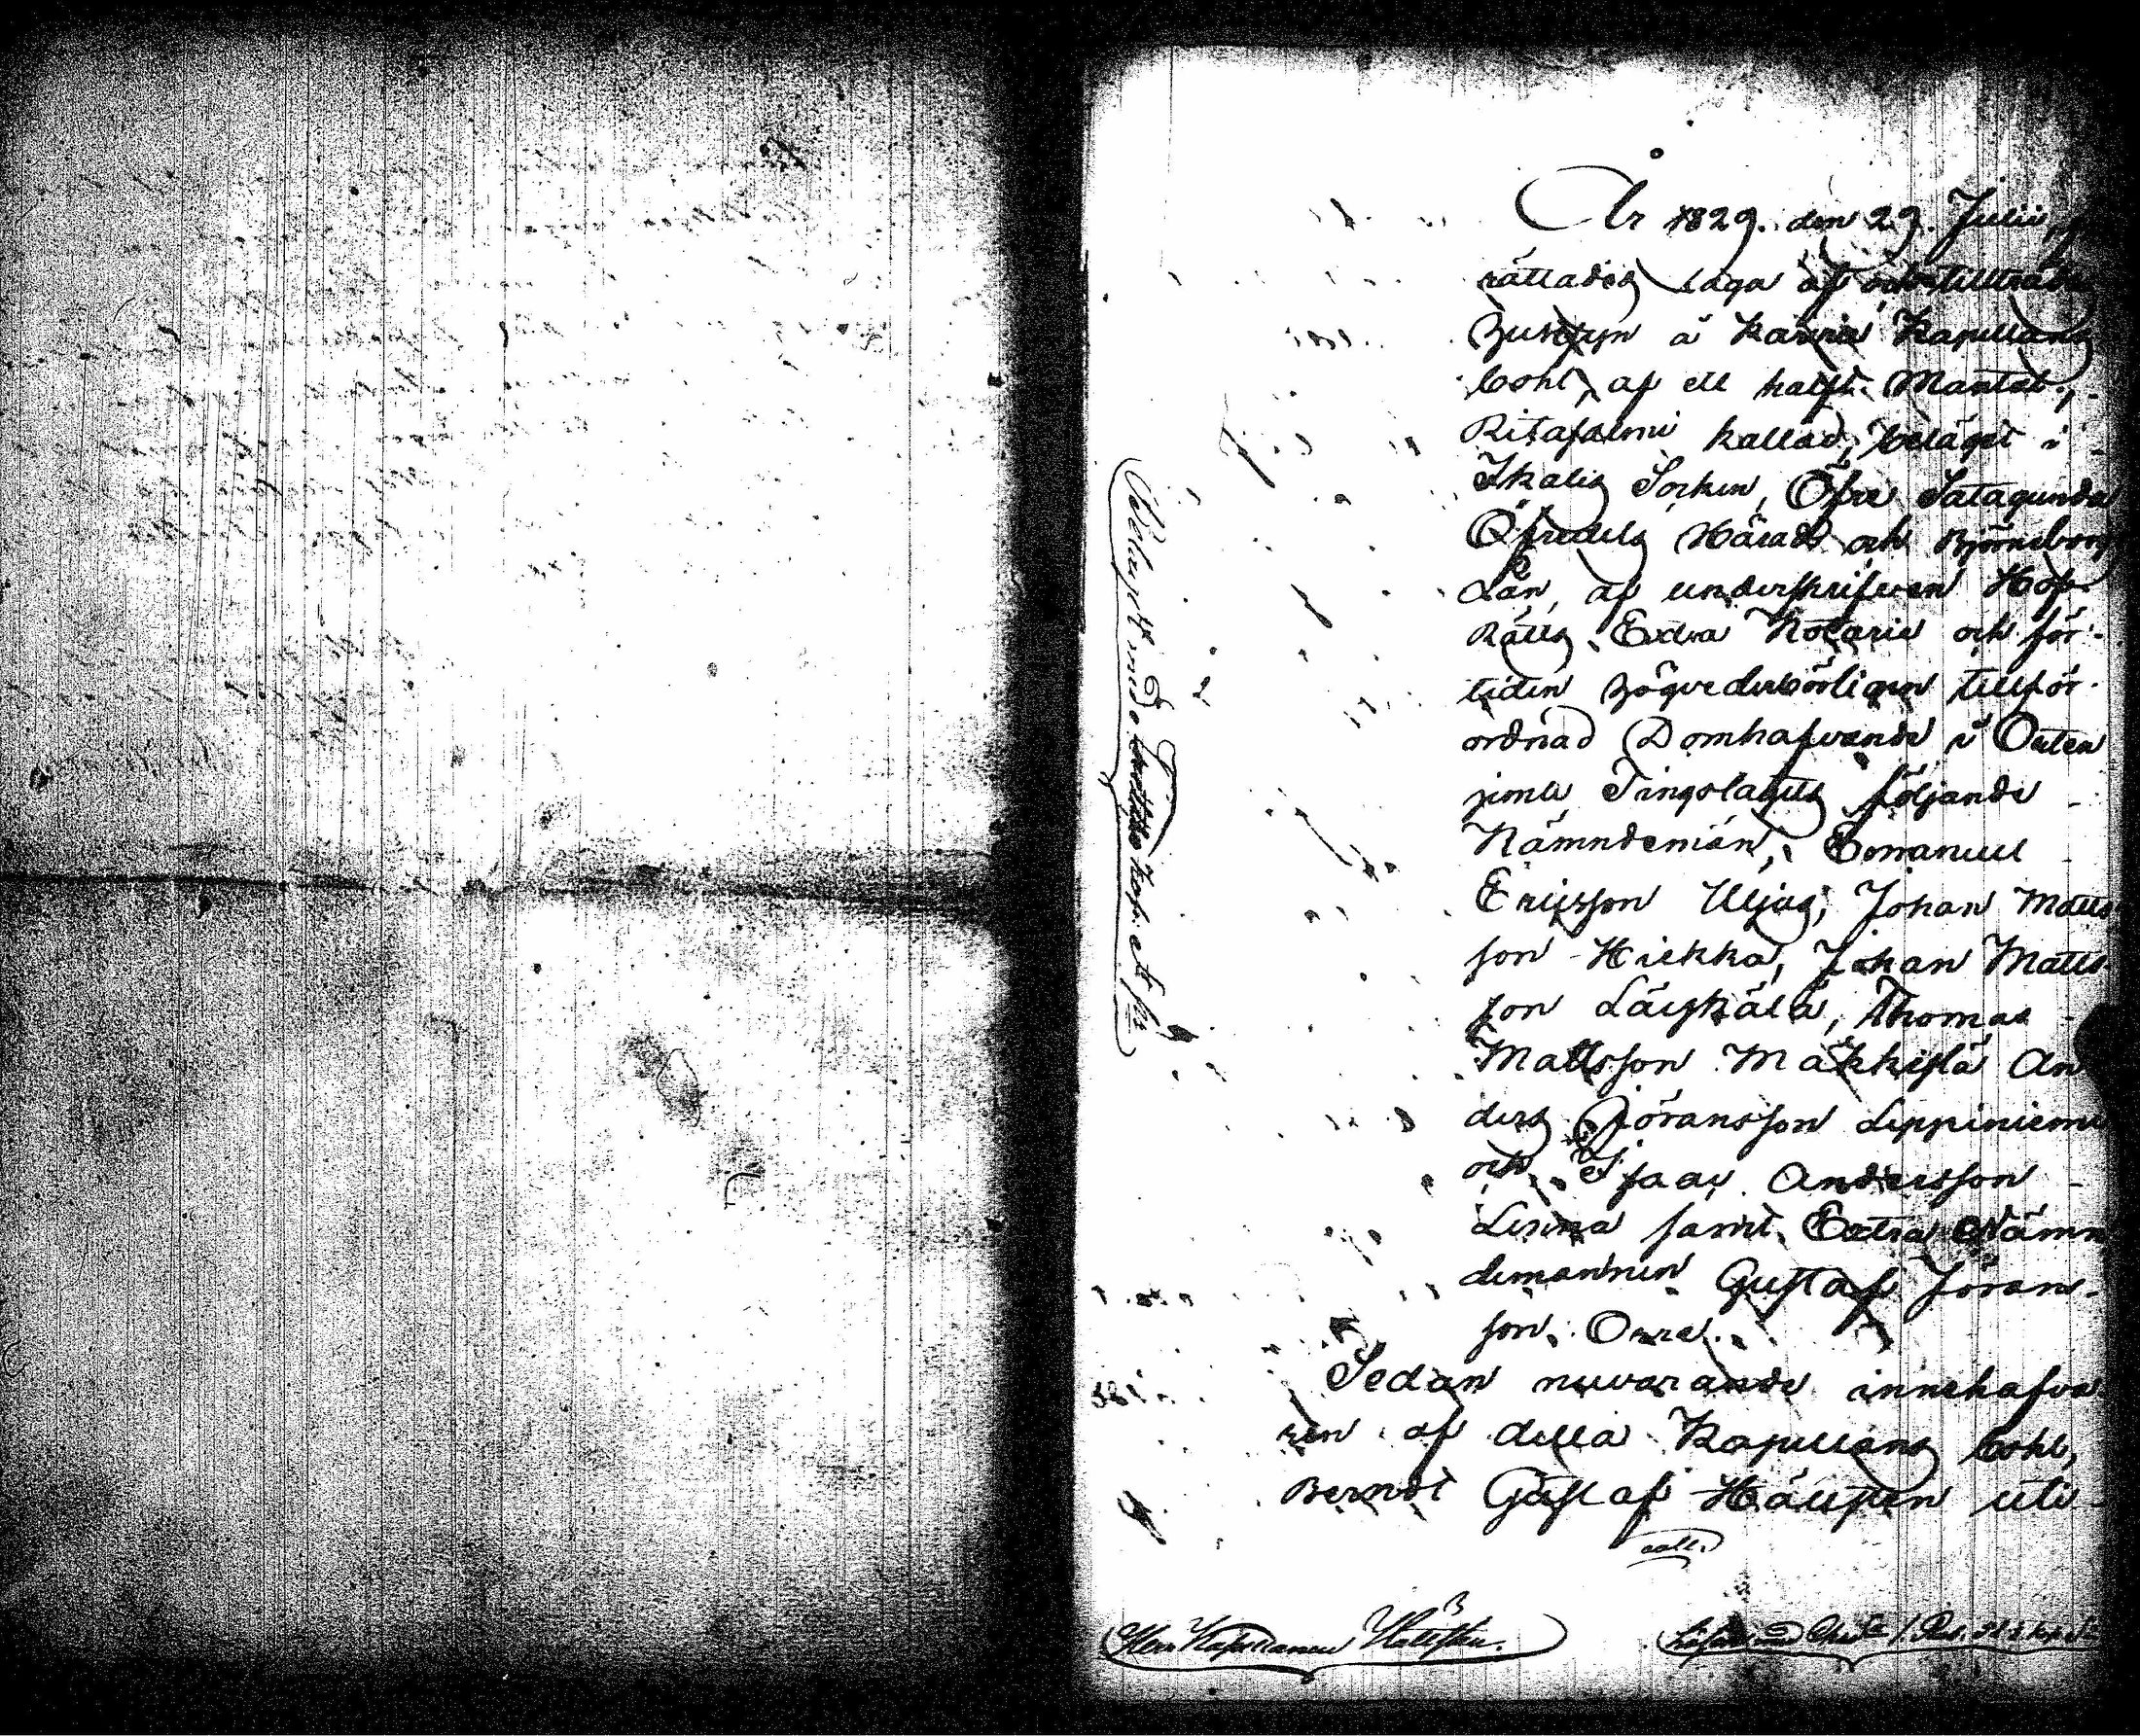 År 1829. den 29. Julii,
rättades laga af och tillträdes
Hussyn å Kapellans
bohl, af ett halft Mantal,
kallad, beläget i
Ikalis Socken, Öfre Satagunda
Öfredels Härad och Björneborgs
Län, af underskrifven Hof
Rätts Extra Notarie och för
tiden högvederbörligen tillför
ordnad Domhafvande i
Tingslagets följande
Nämndemän, Emanuel
Ericsson Uljas, Johan Matts
son Hiekka, Johan Matts
son Läyskälä, Thomas
Mattsson Mäkkislä An
ders Jöransson Leppiniemi
och Isaac Andersson
samt Extra Nämn
demannen Gustaf Jöran
son
Sedan nuvarande innehafva
ren af detta Kapellans bohl,
Berndt Gustaf Hällsten uti
Herr Kapellanen Hällsten.